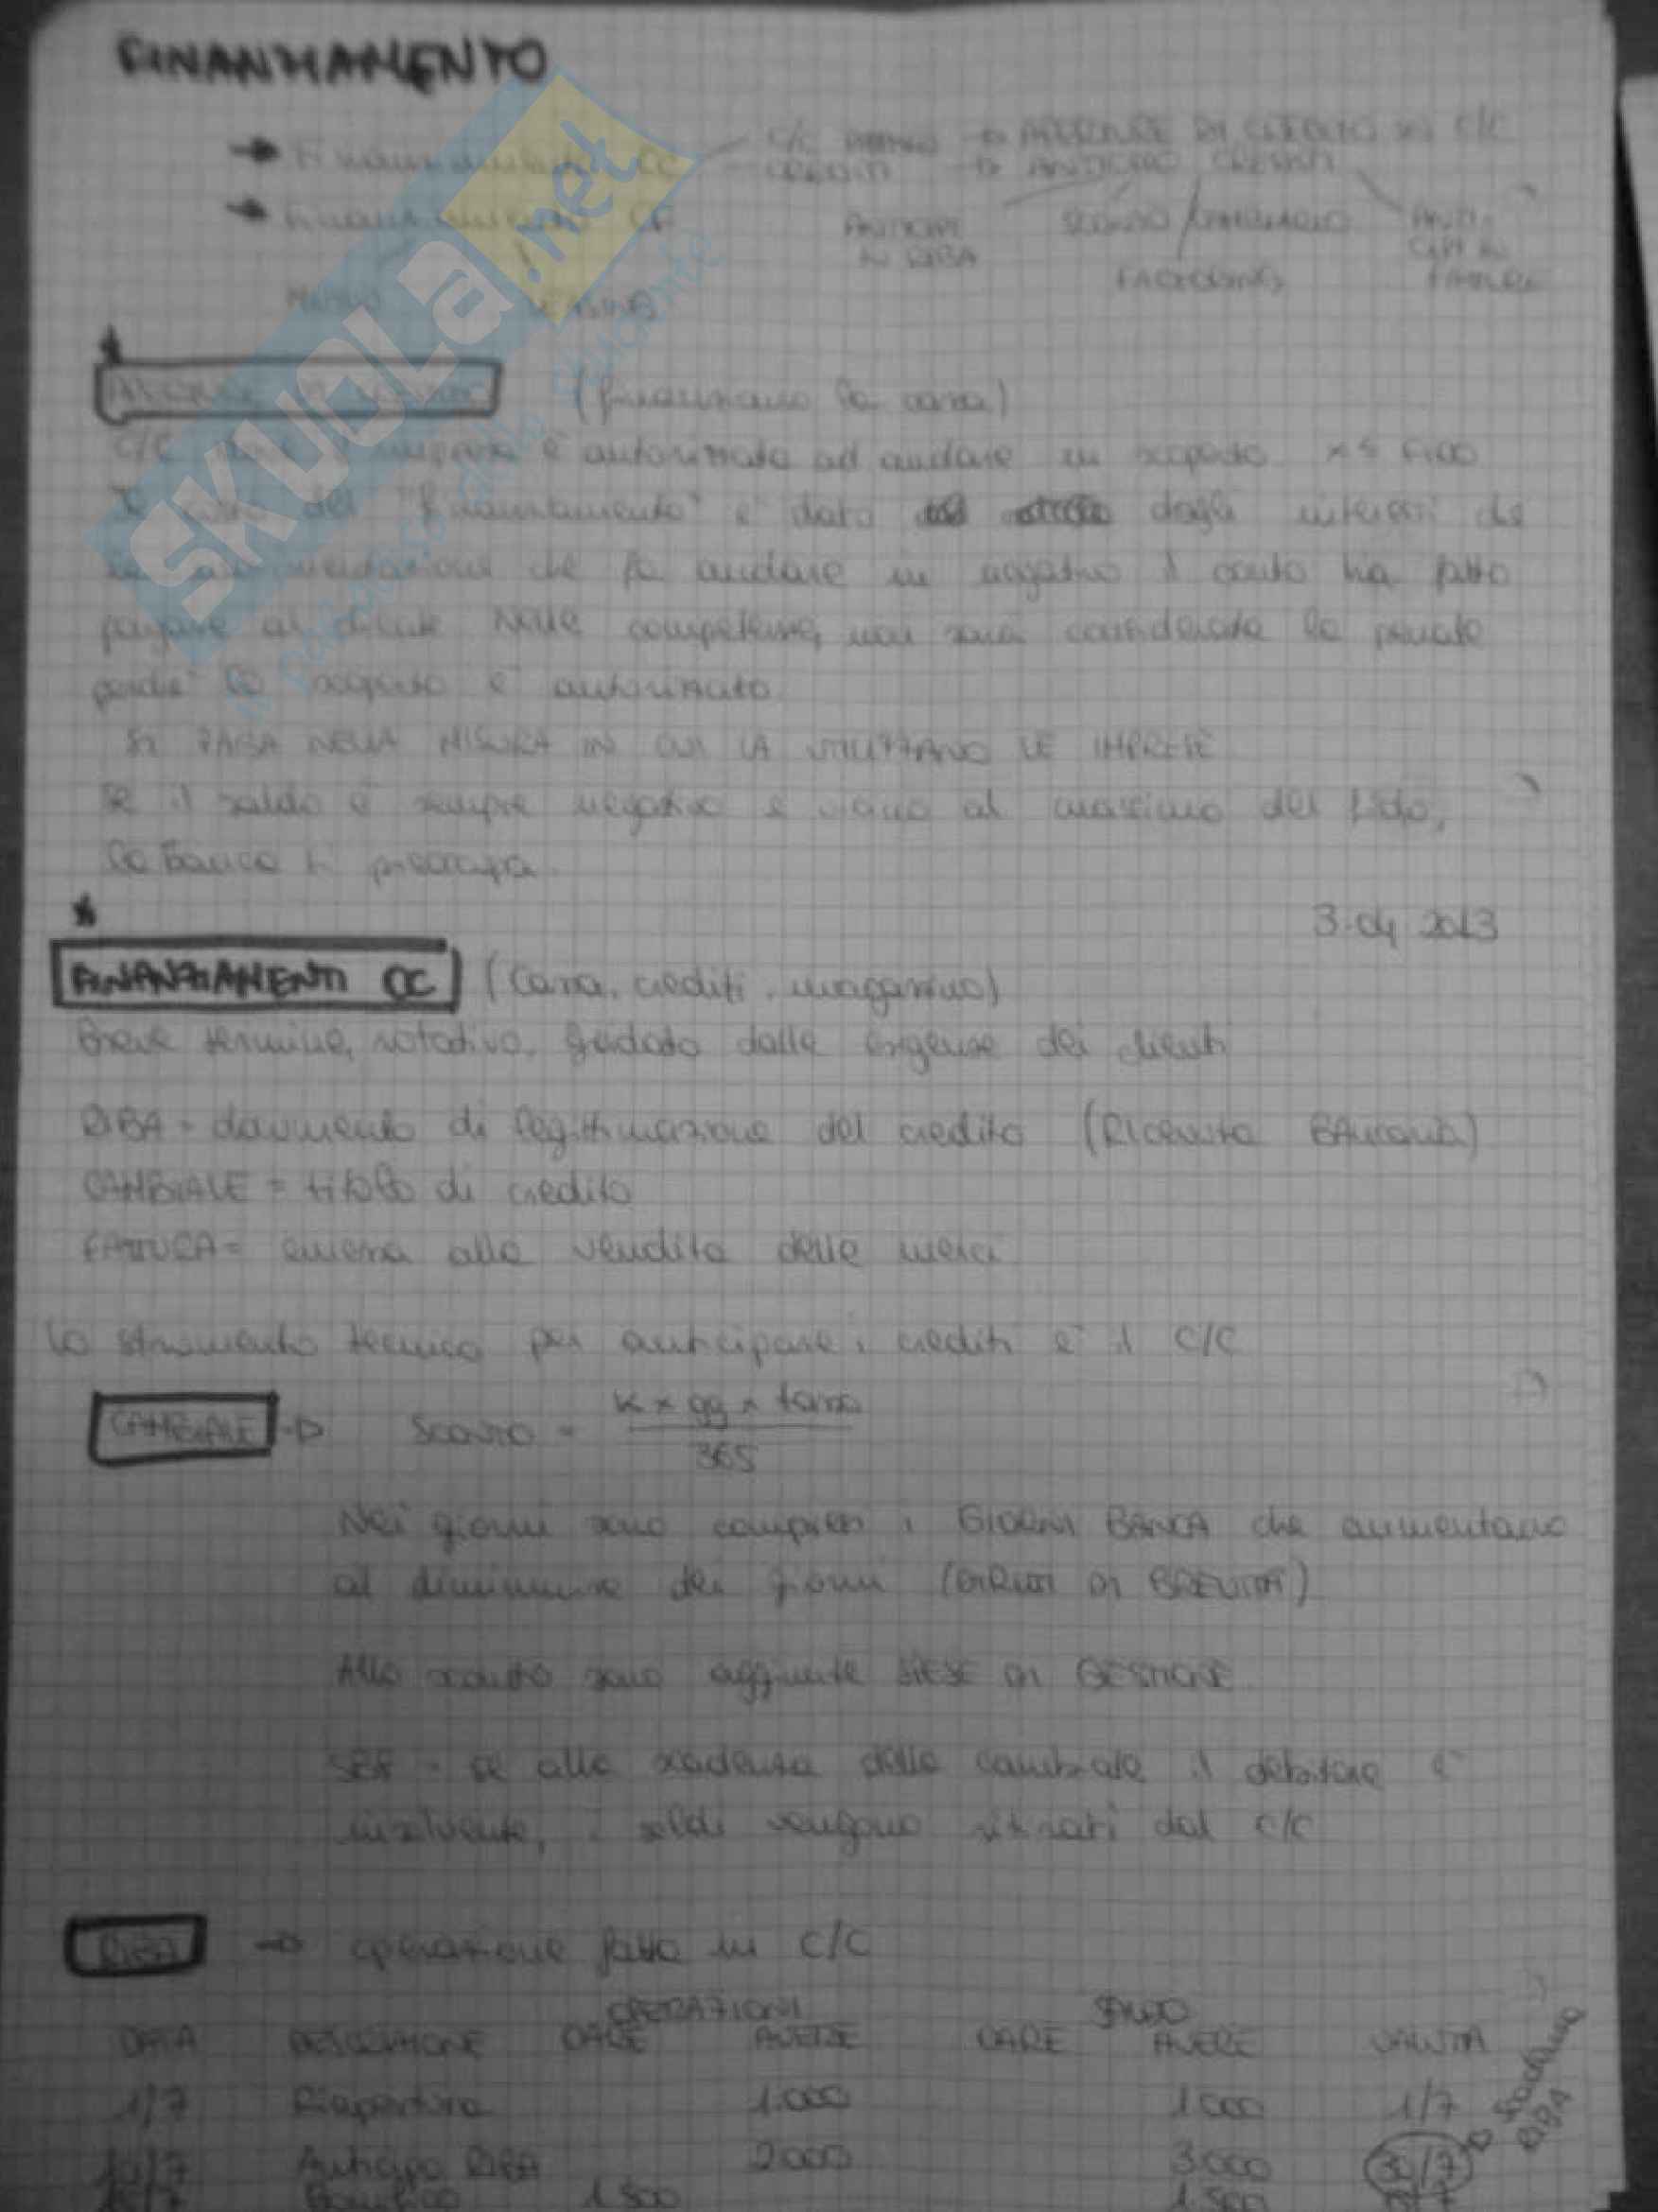 FINANZIAMENTO
→ Finanziamenti CC — C/C → APERTURE DI CREDITO IN C/C
CREDITI → ANTICIPO CREDITI
→ Finanziamenti CF
ANTICIPI SU RIBA
SCONTO CAMBIARIO
FACTORING
ANTICIPI SU FATTURE
MUTUO
(finanziano la cassa)
C/C impresa è autorizzata ad andare in scoperto FIDO
del "finanziamento" è dato dagli interessi che
che fa andare in negativo il conto ha fatto
pagare al cliente. Nelle competenze, non sarà considerata la penale
perché lo scoperto è autorizzato.
SI PAGA NELLA MISURA IN CUI LA UTILIZZANO LE IMPRESE
Se il saldo è sempre negativo e vicino al massimo del fido,
la banca si preoccupa.
3.04.2013
FINANZIAMENTI CC (Cassa, crediti, magazzino)
Breve termine, rotativo, guidato dalle esigenze dei clienti
RIBA = documento di legittimazione del credito (RICevuta BAncaria)
CAMBIALE = titolo di credito
FATTURA = emessa alla vendita delle merci
Lo strumento tecnico per anticipare i crediti è il C/C
CAMBIALE → SCONTO = K x gg x tasso
365
Nei giorni sono compresi i GIORNI BANCA che aumentano
al diminuire dei giorni (DIRITTI DI BREVITÀ)
Allo sconto sono aggiunte SPESE DI GESTIONE.
SBF - se alla scadenza della cambiale il debitore è
insolvente, i soldi vengono ritirati dal C/C
RIBA → operazione fatta in C/C
OPERAZIONI SALDO
DATA DESCRIZIONE DARE AVERE DARE AVERE VALUTA
1/7 Riapertura 1.000 1.000 1/7
Anticipo RIBA 2.000 3.000 30/7 → scadenza RIBA
Bonifico 1.500 1.500
SKUOLA.net